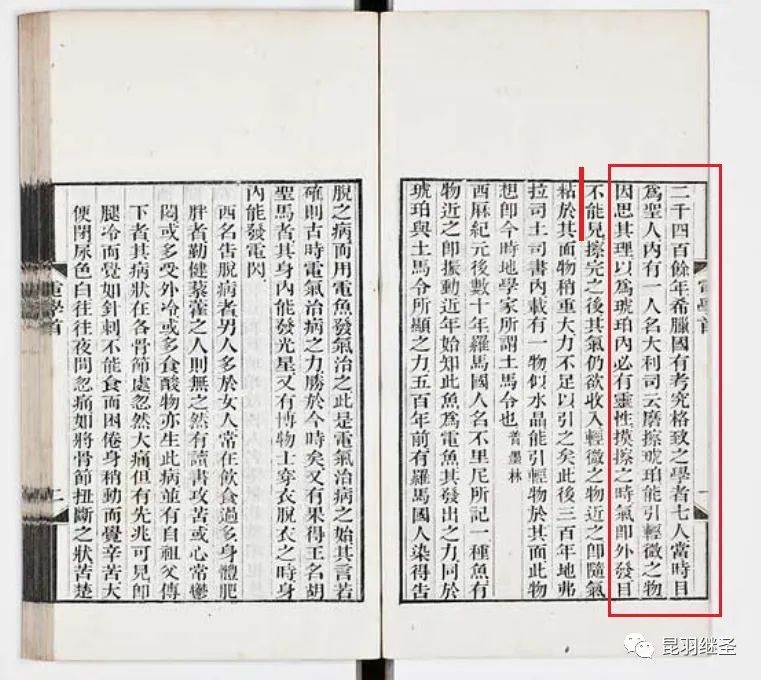 二千四百餘年希臘國有考究格致之學者七人當時目
為聖人內有一人名大利司云磨擦琥珀能引輕微之物
因思其理以為琥珀內必有靈性摸擦之時氣卽外發目
不能見擦完之後其氣仍欲收入輕微之物近之卽隨氣
粘於其面物稍重大力不足以引之矣此後三百年地弗
拉司土司書內載有一物似水晶能引輕物於其面此物
想卽今時地學家所謂土馬令也 普墨林
西厤紀元後數十年羅馬國人名不里尼所記一種魚有
物近之卽振動近年始知此魚為電魚其發出之力同於
琥珀與土馬令所顯之力五百年前有羅馬國人染得告
電學首
一
脫之病而用電魚發氣治之此是電氣治病之始其言若
確則古時電氣治病之力勝於今時矣又有果得王名胡
聖馬者其身內能發光星又有博物士穿衣脫衣之時身
內能發電閃
西名告脫病者男人多於女人常在飲食過多身體肥
胖者勤健藜藿之人則無之然有讀書攻苦或心常鬱
悶或多受外冷或多食酸物亦生此病並有自祖父傳
下者其病狀在各骨節處忽然大痛但有先兆可見卽
腿冷而覺如針刺不能食而困倦身稍動而覺辛苦大
便閉尿色白往往夜間忽痛如將骨節扭斷之狀苦楚
電學首
二
昆羽继圣